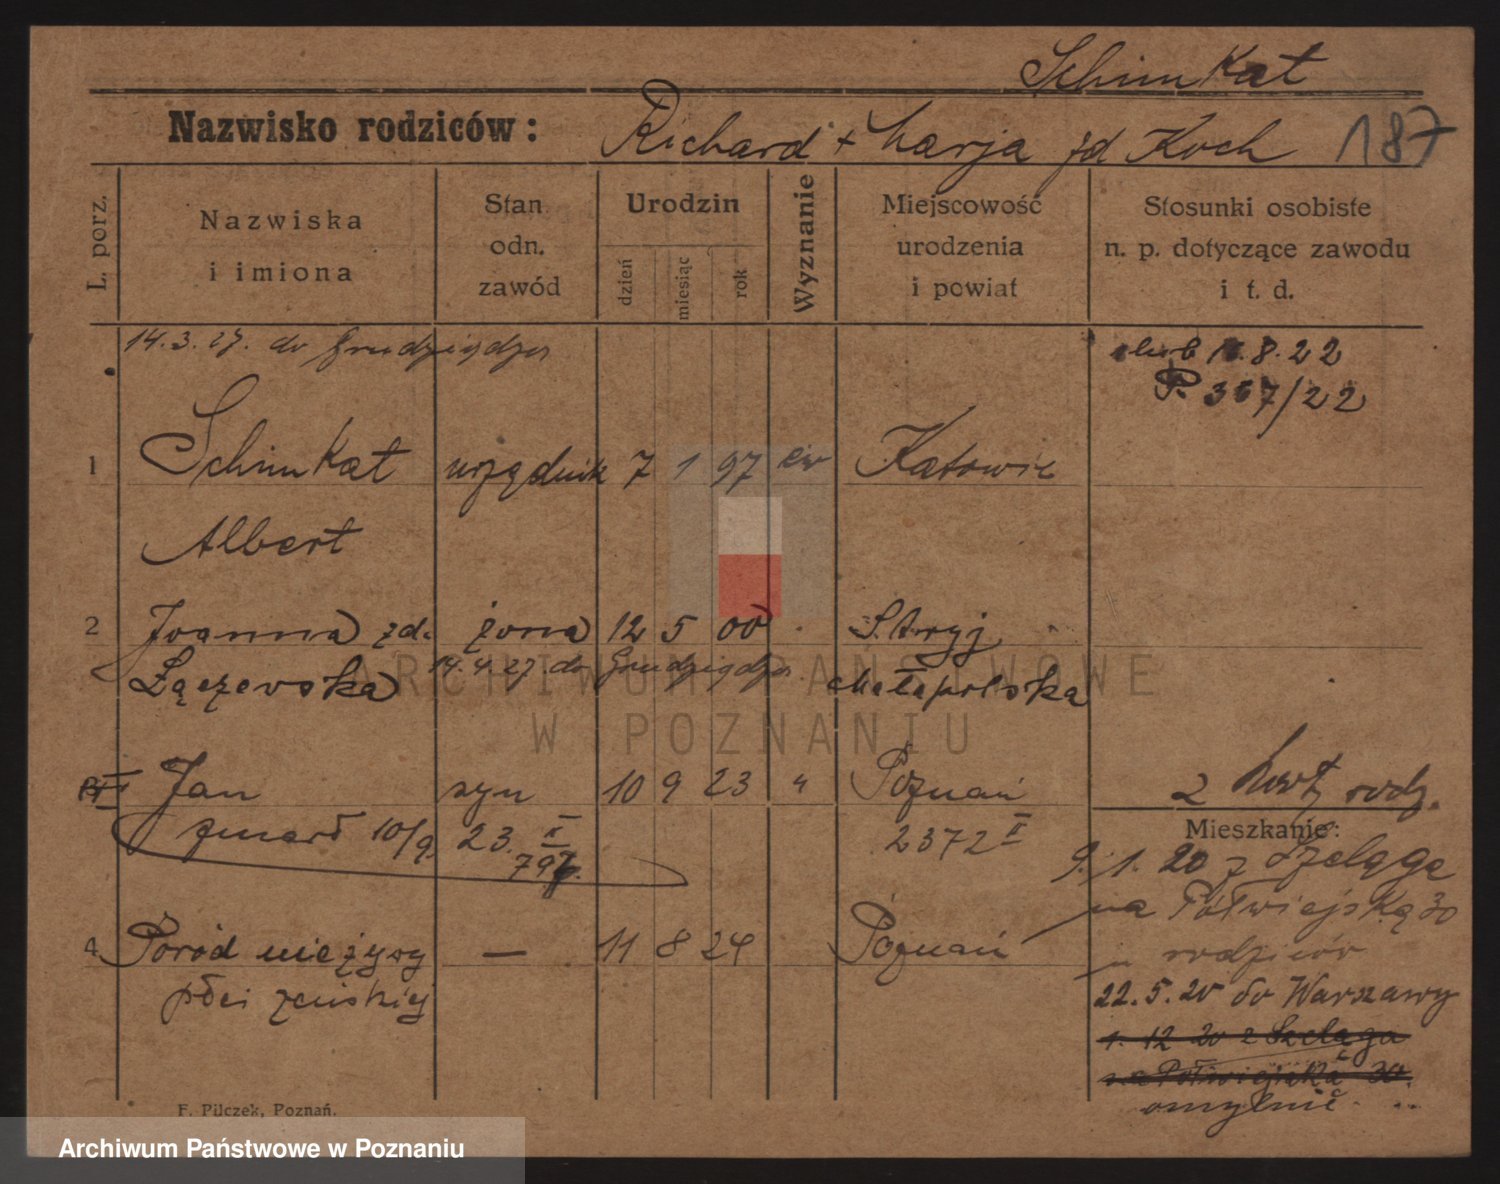 Schimkat
Nazwisko rodziców: Richard + Marja zd Koch 187
L. porz.
Nazwiska i imiona
Stan. odn. zawód
Urodzin
dzień miesiąc rok
Wyznanie
Miejscowość urodzenia i powiat
Stosunki osobiste n. p. dotyczące zawodu i t. d.
14.3.27. do Grudziądza
ślub 8.22
P. 367/22
1 Schimkat urzędnik 7 1 97 ew Katowic
Albert
2 Joanna zd. żona 12 5 00 Stryj
14.4.27. do Grudziądza
Łączevska Małapolska
Jan syn 10 9 23 " Poznań
zmarł 10/9 23. II 2372 II
797.
2 kart rodz.
Mieszkanie:
9. 1. 20 z Szeląga
na Półwiejską 30
u rodziców
22. 5. 20 do Warszawy
1. 12 20 z Szeląga
na Półwiejską 30.
omylnie
4. Poród nieżywy — 11 8 24 Poznań
płci żeńskiej
F. Pilczek, Poznań.
ARCHIWUM PAŃSTWOWE
W POZNANIU
Archiwum Państwowe w Poznaniu